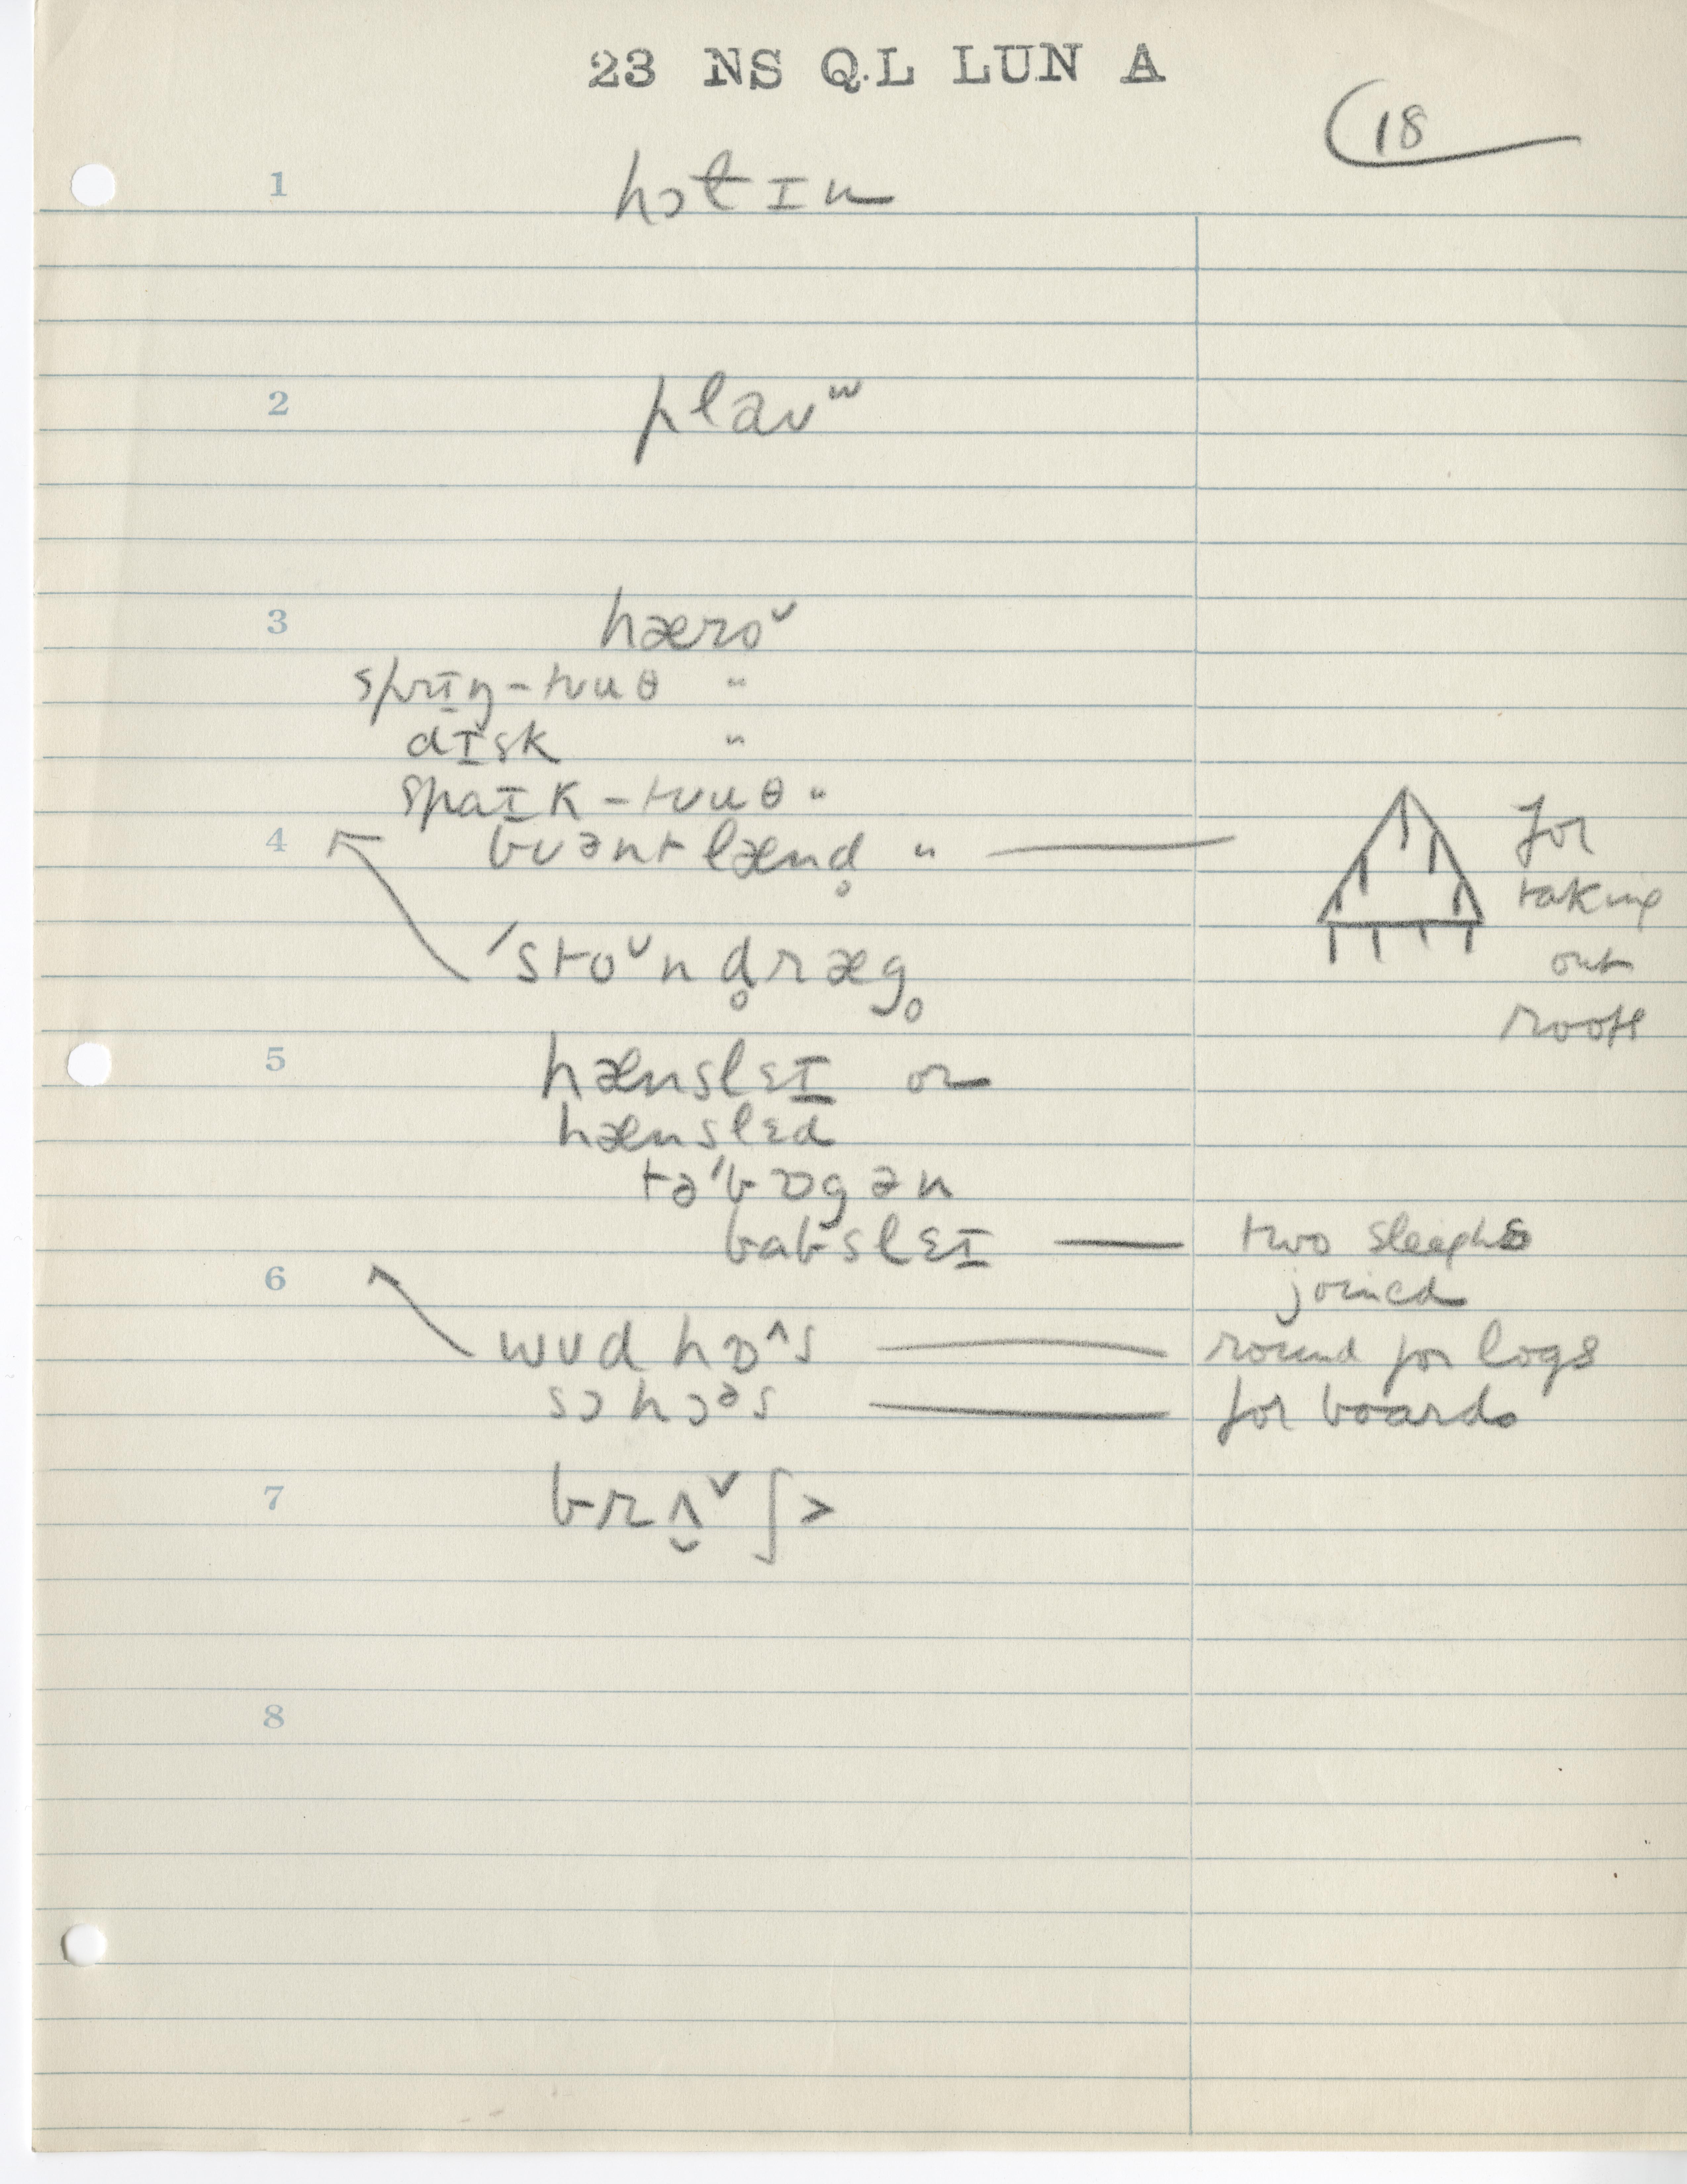 23 NS QL LUN A
18
1 hɔtɪn
2 plaʊʷ
3 hæroᵛ
sprɪŋ-tʊuθ "
dɪsk "
spaɪk-tʊuθ "
4 bʊəntlænd̥ " — for
taking
out
roots
ˈstoᵛnd̥ræg̥
5 hænslɛɪ or
hænslɛd
təˈbɒgən
babslɛɪ — two sleighs
6 joined
wʊd hɒ^s — round for logs
sɔhɔᵊs — for boards
7 brʌ̮ˇʃ>
8